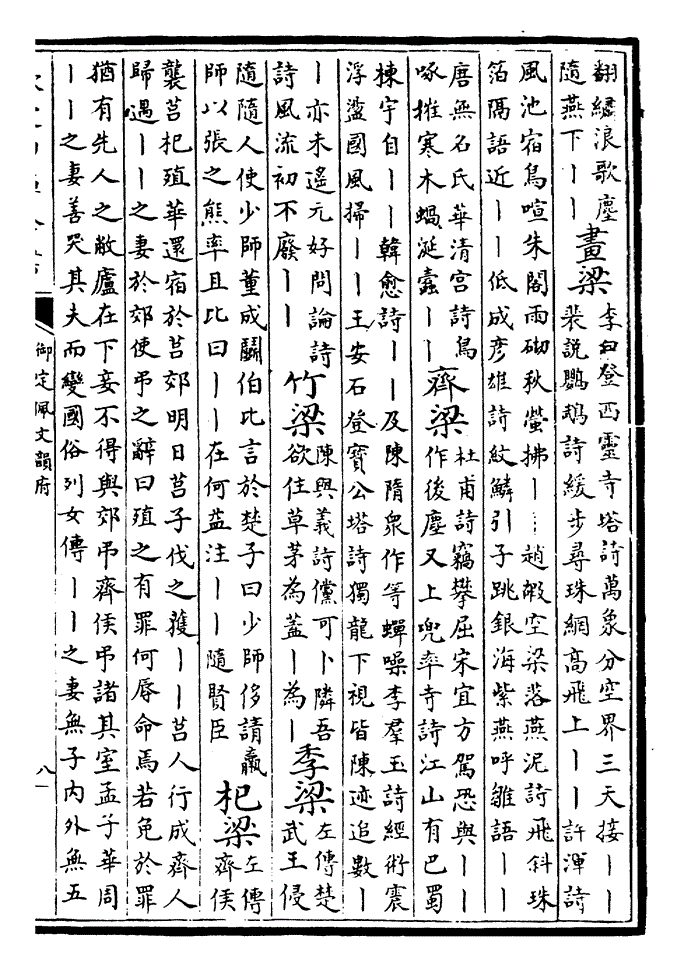 翻繡浪歌塵
隨燕下丨丨
畫梁
李白登西靈寺塔詩萬象分空界三天接丨丨
裴説鸚鵡詩緩步尋珠網高飛上丨丨許渾詩
風池宿鳥喧朱閣雨砌秋螢拂丨丨趙嘏空梁落燕泥詩飛斜珠
箔隔語近丨丨低成彥雄詩紋鱗引子跳銀海紫燕呼雛語丨丨
唐無名氏華清宮詩鳥
啄摧寒木蝸涎蠹丨丨
齊梁
杜甫詩竊攀屈宋宜方駕恐與丨丨
作後塵又上兜率寺詩江山有巴蜀
棟宇自丨丨韓愈詩丨丨及陳隋衆作等蟬噪李羣玉詩經術震
浮盪國風掃丨丨王安石登寶公塔詩獨龍下視皆陳迹追數丨
丨亦未遙元好問論詩
詩風流初不廢丨丨
竹梁
陳與義詩儻可卜隣吾
欲住草茅為蓋丨為丨
季梁
左傳楚
武王侵
隨隨人使少師董成鬭伯比言於楚子曰少師侈請羸
師以張之熊率且比曰丨丨在何益注丨丨隨賢臣
杞梁
左傳
齊侯
襲莒杞殖華還宿於莒郊明日莒子伐之獲丨丨莒人行成齊人
歸遇丨丨之妻於郊使弔之辭曰殖之有罪何辱命焉若免於罪
猶有先人之敝廬在下妾不得與郊弔齊侯弔諸其室孟子華周
丨丨之妻善哭其夫而變國俗列女傳丨丨之妻無子內外無五
御定佩文韻府